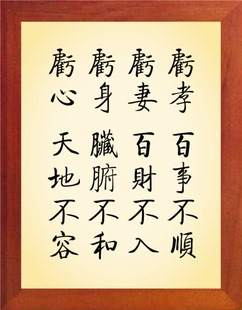 虧孝百事不順
虧妻百財不入
虧身臟腑不和
虧心天地不容